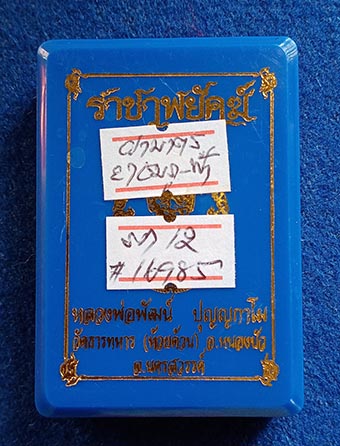 ราชาพยัคฆ์
ผ่ามหา
ตา 12
#16985
หลวงพ่อพัฒน์ ปุญญกาโม
วัดธารทหาร (ห้วยด้วน) อ.หนองบัว
จ.นครสวรรค์